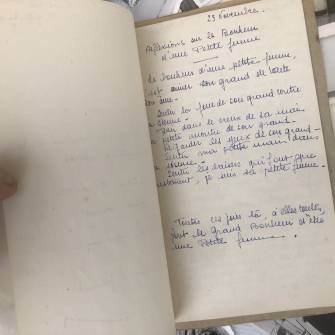 23 Novembre.
Réflexions sur le Bonheur
d'une Petite femme
Le bonheur d'une petite femme,
c'est aimer son grand de toute
son âme.
Sentir la joue de son grand contre
la sienne.
dans le creux de sa main
la petite montre de son grand
Regarder les yeux de son grand
Sentir ma petite main dans
la sienne.
Sentir les baisers qui font que
je suis sa petite femme.
Toutes ces joies là, à elles toutes,
font le Grand Bonheur d'être
une Petite femme.